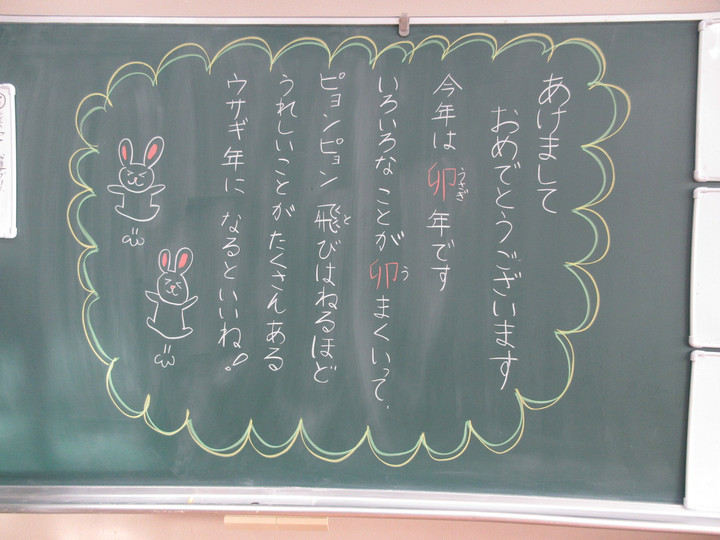 あけまして
おめでとうございます
今年は卯年です
うさぎ
いろいろなことが卯まくいって、
う
ピョンピョン飛びはねるほど
と
うれしいことがたくさんある
ウサギ年になるといいね!